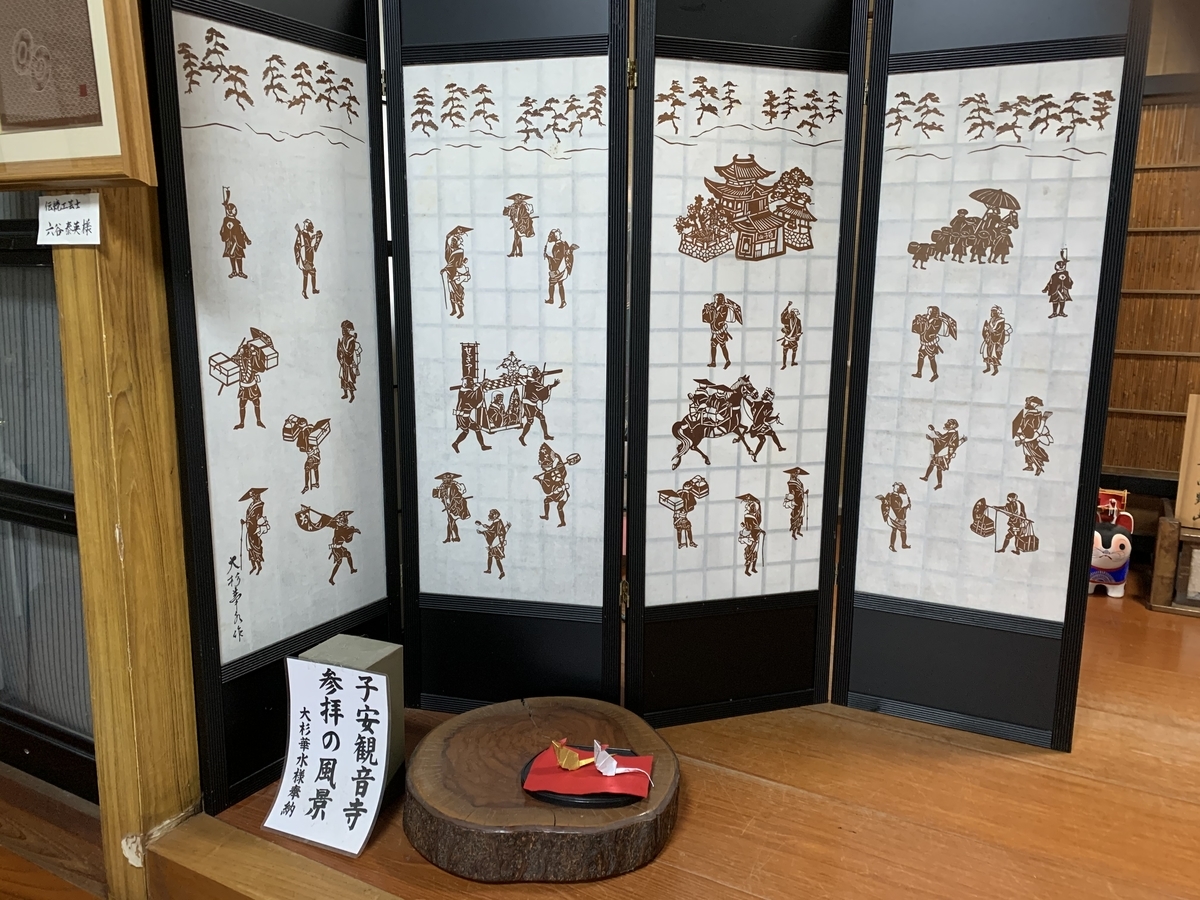 伝統工芸士
六谷泰英様
子安観音寺
参拝の風景
大杉華水様奉納
大杉華水作